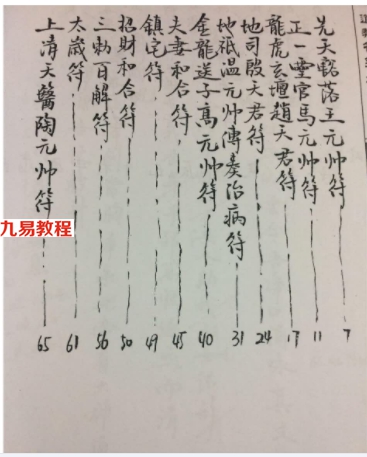 先天豁落王元帅符 7
正一灵官馬元帅符 11
龍虎玄壇趙天君符 17
地司殷天君符 24
地祇温元帅傳奏治病符 31
金龍送子高元帅符 40
夫妻和合符 45
鎮宅符 49
招財和合符 50
三勅百解符 56
太歲符 61
上清天醫陶元帅符 65
九易教程